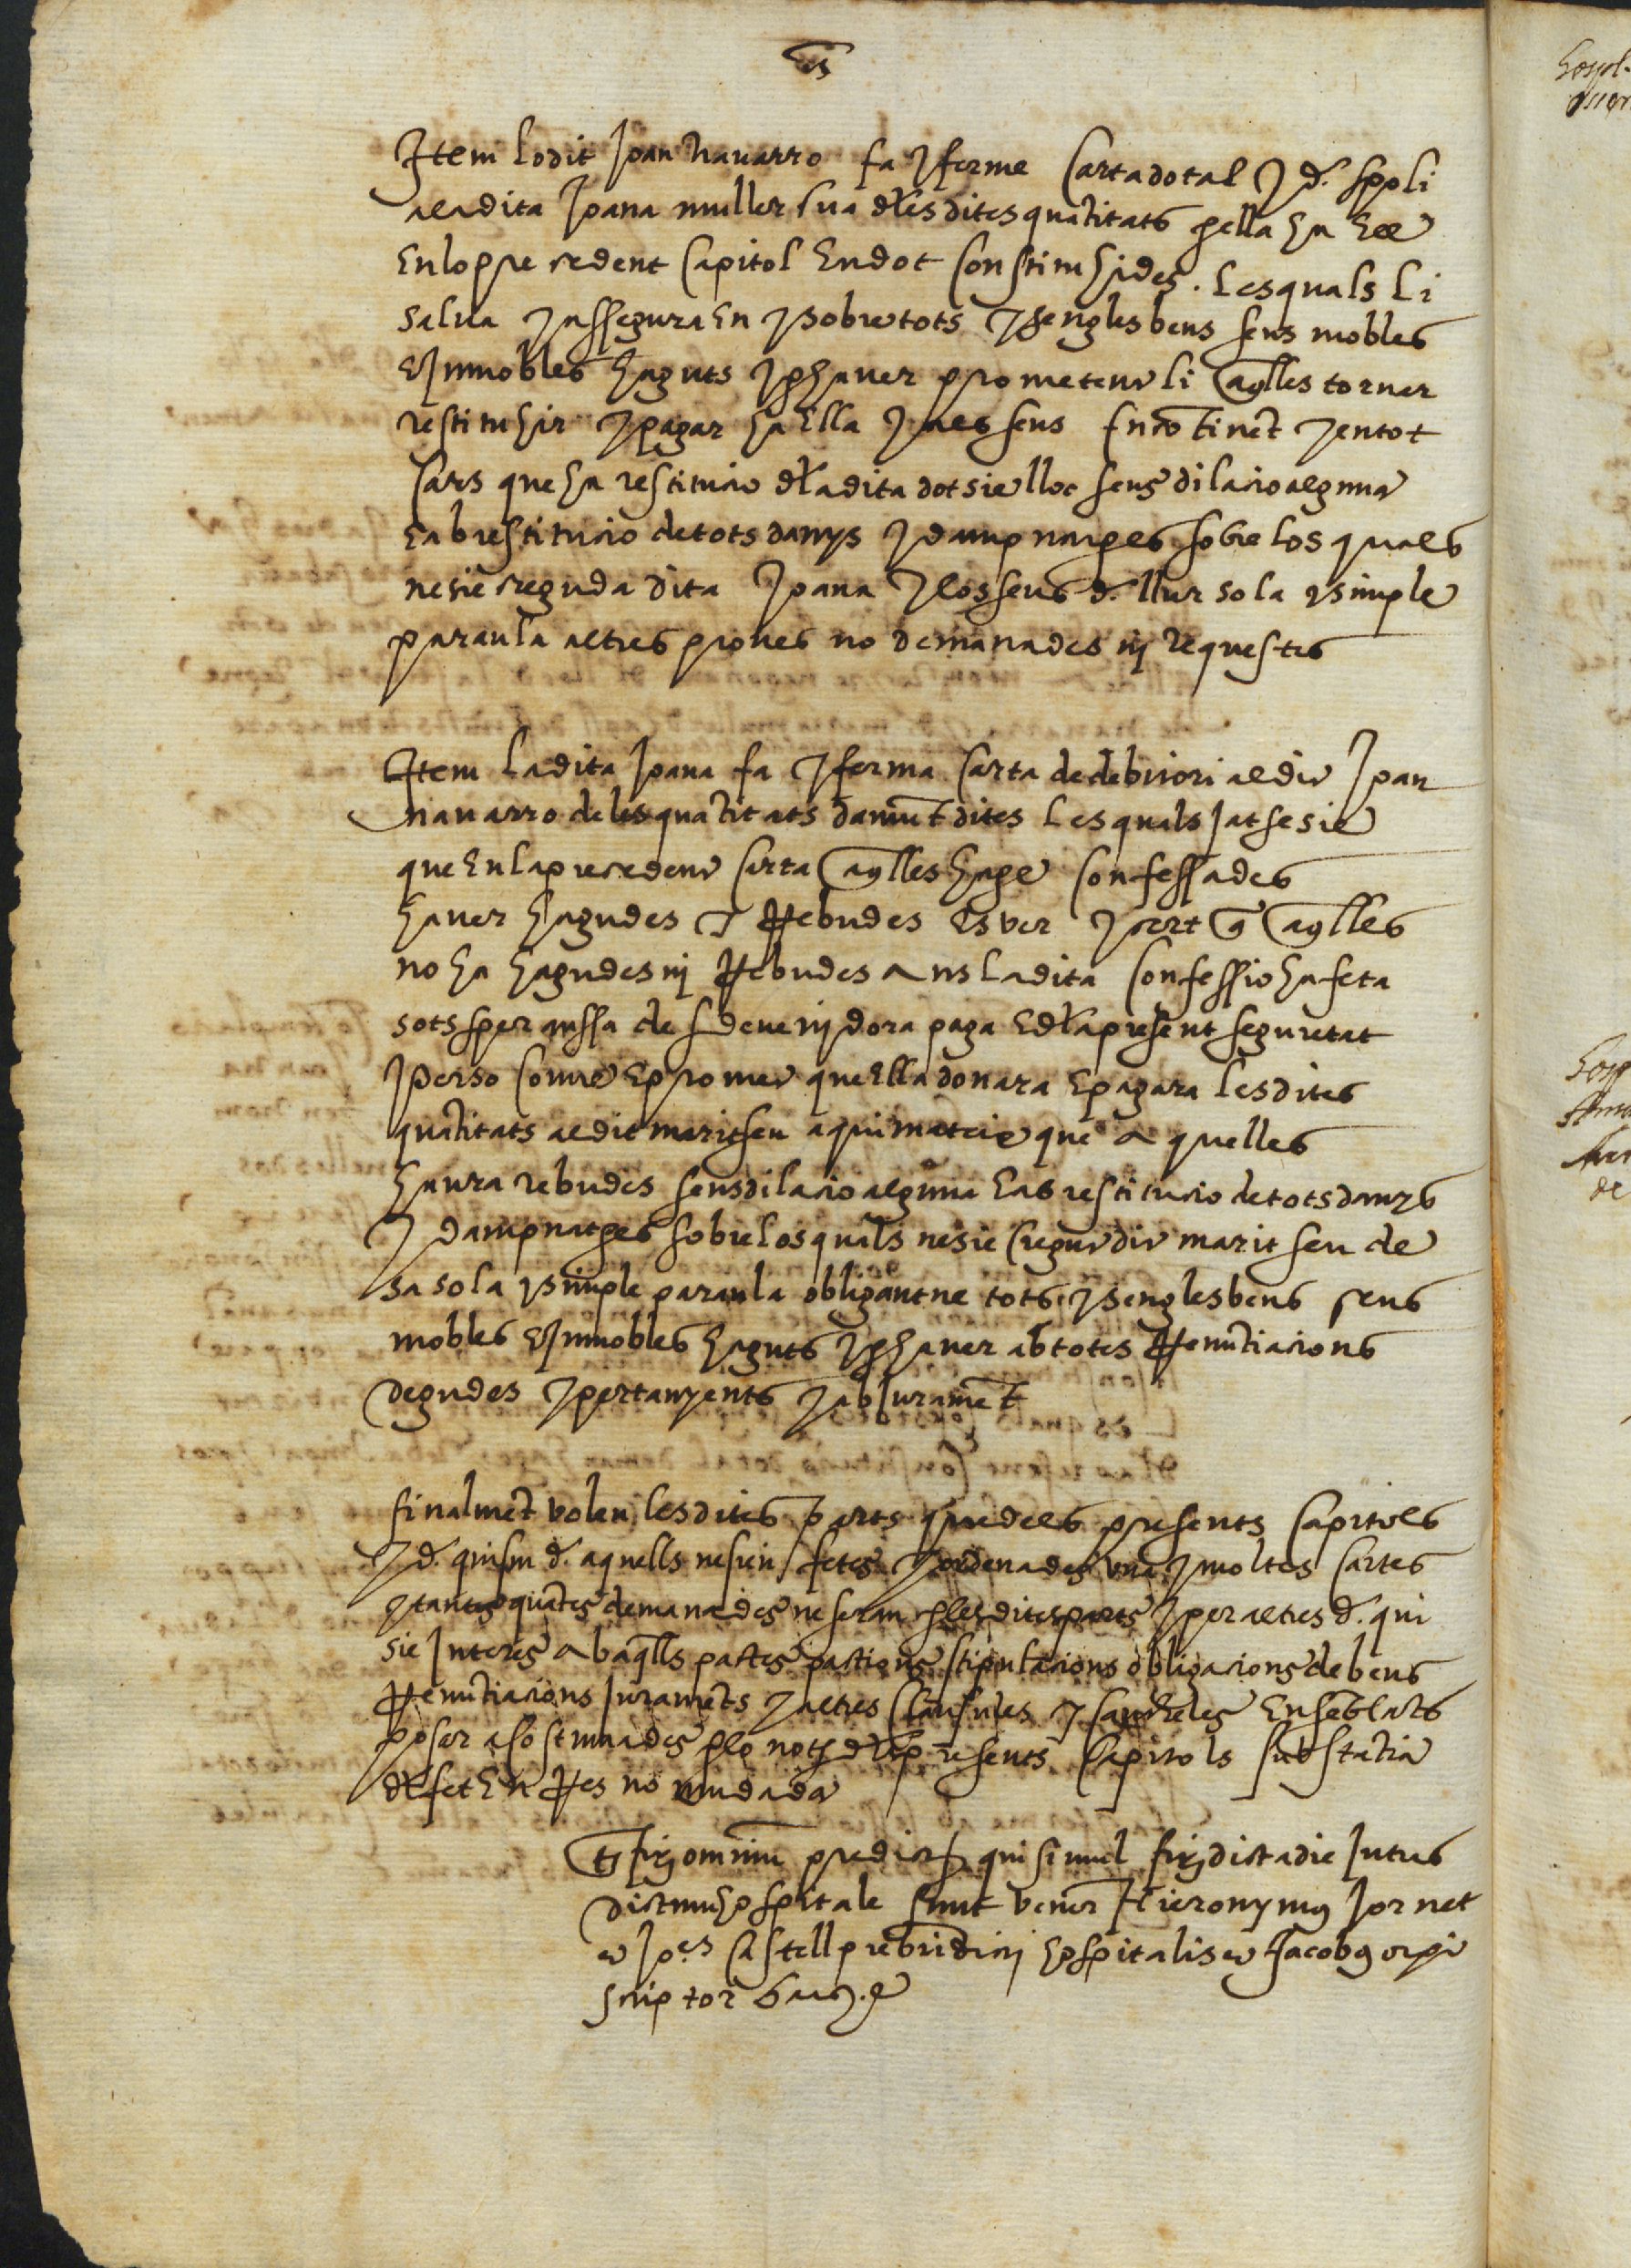 Jtem lo dit Joan nauarro fa y ferme Carta dotal y d. spoli
a la dita Joana muller sua dles dites quatitats p ella ha Ell
En lo precedent Capitol En dot Constituhides. Les quals li
salua y assegura En y sobre tots y sengles bens seus mobles
E Jmmobles haguts y p hauer prometent li aqlles tornar
restituhir y pagar ha Ella y als seus Encotinet y en tot
Cars que ha restitucio dla dita dot sie lloc sens dilacio alguna
Eab restitucio de tots danys y dampnatges sobre los quals
ne sie creguda dita Joana y los seus d. llur sola y simple
paraula altres proues no demanades nj requestes
Jtem la dita Joana fa y ferma Carta de debitori al dit Joan
nauarro de les quatitats damut dites Les quals Jatsesie
que En la precedent Carta aqlles hage Confessades
hauer hagudes y Rebudes Es ver y cert q aqlles
no ha hagudes nj Rebudes ans la dita Confessio ha feta
sots speranssa de sdeuenjdora paga E dla present seguretat
y perso Conue E promet que Ella donara E pagara les dites
quatitats al dit marit seu aqui mateix que aquelles
haura rebudes sens dilacio alguna Eab restitucio de tots danys
y dampnatges sobre los quals ne sie Cregut dit marit seu de
sa sola y simple paraula obligantne tots y sengles bens seus
mobles E Jmmobles haguts y p hauer ab totes Renutiacions
degudes y pertanyents y ab Juramet
finalmet volen les dites parts que dels presents Capitols
y d. quisqu d. aquells ne sien fetes y ordenades vna y moltes Cartes
y tantes quates demanades ne seran p les dites parts y per altres d. qui
sie Interes ab aqlls pactes pactions stipulacions obligacions de bens
Renutiacions Juramets y altres Clausules y Cauteles En seblats
posar acostumades p lo noty dls presents Capitols substatia
del fet En Res no mudada
qui simul dicta die Intus
dictum hospitale sunt vener Hieronymus Jornet
et Joes Castell prebri dicti hospitalis et Jacobus
scriptor